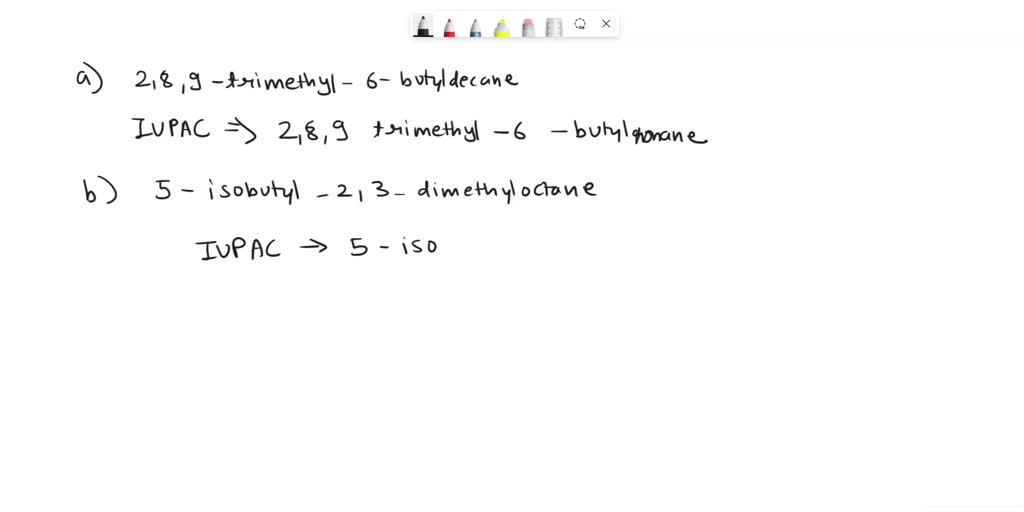 a) 2,8,9-trimethyl-6-butyldecane
IUPAC ⇒ 2,8,9 trimethyl-6-
b) 5-isobutyl-2,3-dimethyloctane
IUPAC → 5-iso